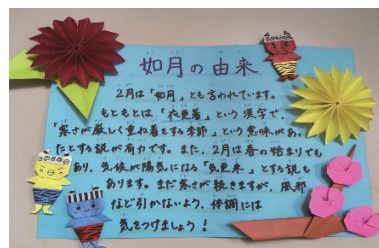 如月の由来
2月は「如月」とも言われています。
もともとは、「衣更着」という漢字で、
「寒さが厳しく重ね着をする季節」という意味があっ
たとする説が有力です。また、2月は春の始まりでも
あり、気候が陽気になる「気更来」とする説も
あります。まだ寒さが続きますが、風邪
など引かないよう、体調には
気をつけましょう！